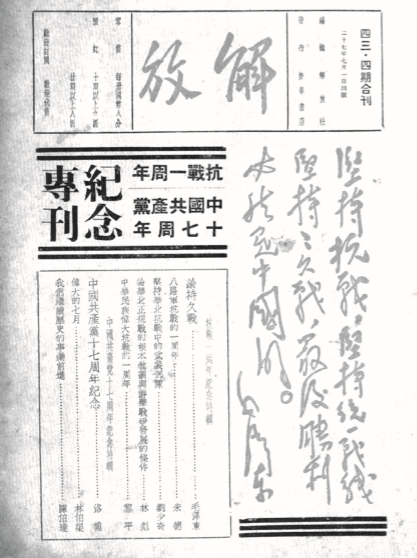 四三·四期合刊
二十七年七月一日出版
編輯 解放社
發行 新華書店
解放
零售 每冊國幣八分
歡迎訂閱 歡迎投稿
堅持抗戰,堅持統一戰線,
堅持持久戰,最後勝利
必然是中國的。
毛澤東
抗戰一周年
中國共產黨
十七周年
紀念
專刊
抗戰一周年紀念特輯
論持久戰……毛澤東
八路軍抗戰的一周年……朱德
堅持華北抗戰中的武裝部隊……劉少奇
論華北正規戰的基本教訓與游擊戰爭發展的條件……林彪
中華民族偉大抗戰的一周年……黎平
中國共產黨十七周年紀念特輯
中國共產黨十七周年紀念……洛甫
偉大的七月……林伯渠
我們繼續歷史的事業前進……陳伯達